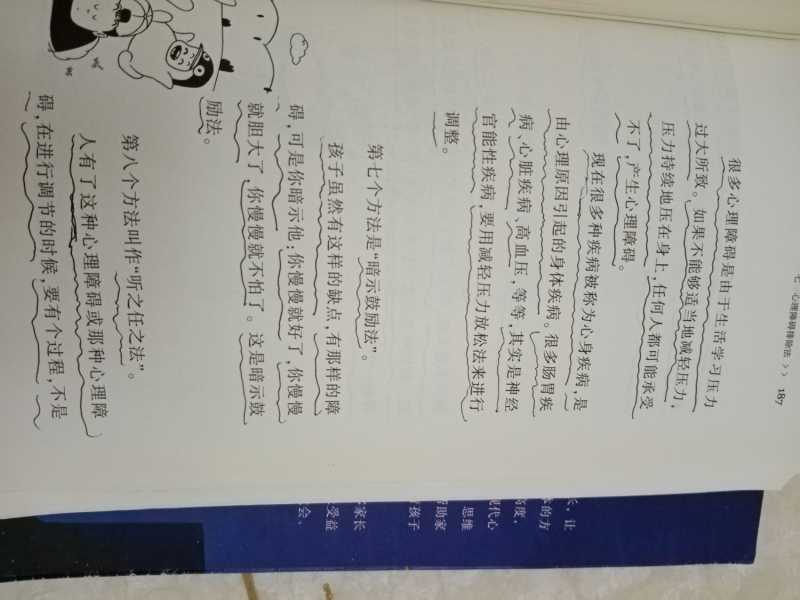 七 心理障碍排除法 >> 187
很多心理障碍是由于生活学习压力
过大所致。如果不能够适当地减轻压力，
压力持续地压在身上，任何人都可能承受
不了，产生心理障碍。
现在很多种疾病被称为心身疾病，是
由心理原因引起的身体疾病。很多肠胃疾
病、心脏疾病、高血压，等等，其实是神经
官能性疾病，要用减轻压力放松法来进行
调整。
第七个方法是“暗示鼓励法”。
孩子虽然有这样的缺点，有那样的障
碍，可是你暗示他：你慢慢就好了，你慢慢
就胆大了，你慢慢就不怕了。这是暗示鼓
励法。
第八个方法叫作“听之任之法”。
人有了这种心理障碍或那种心理障
碍，在进行调节的时候，要有个过程，不是
，让
的方
高度，
现代心
思维
帮助家
孩子
家长
受益
会、